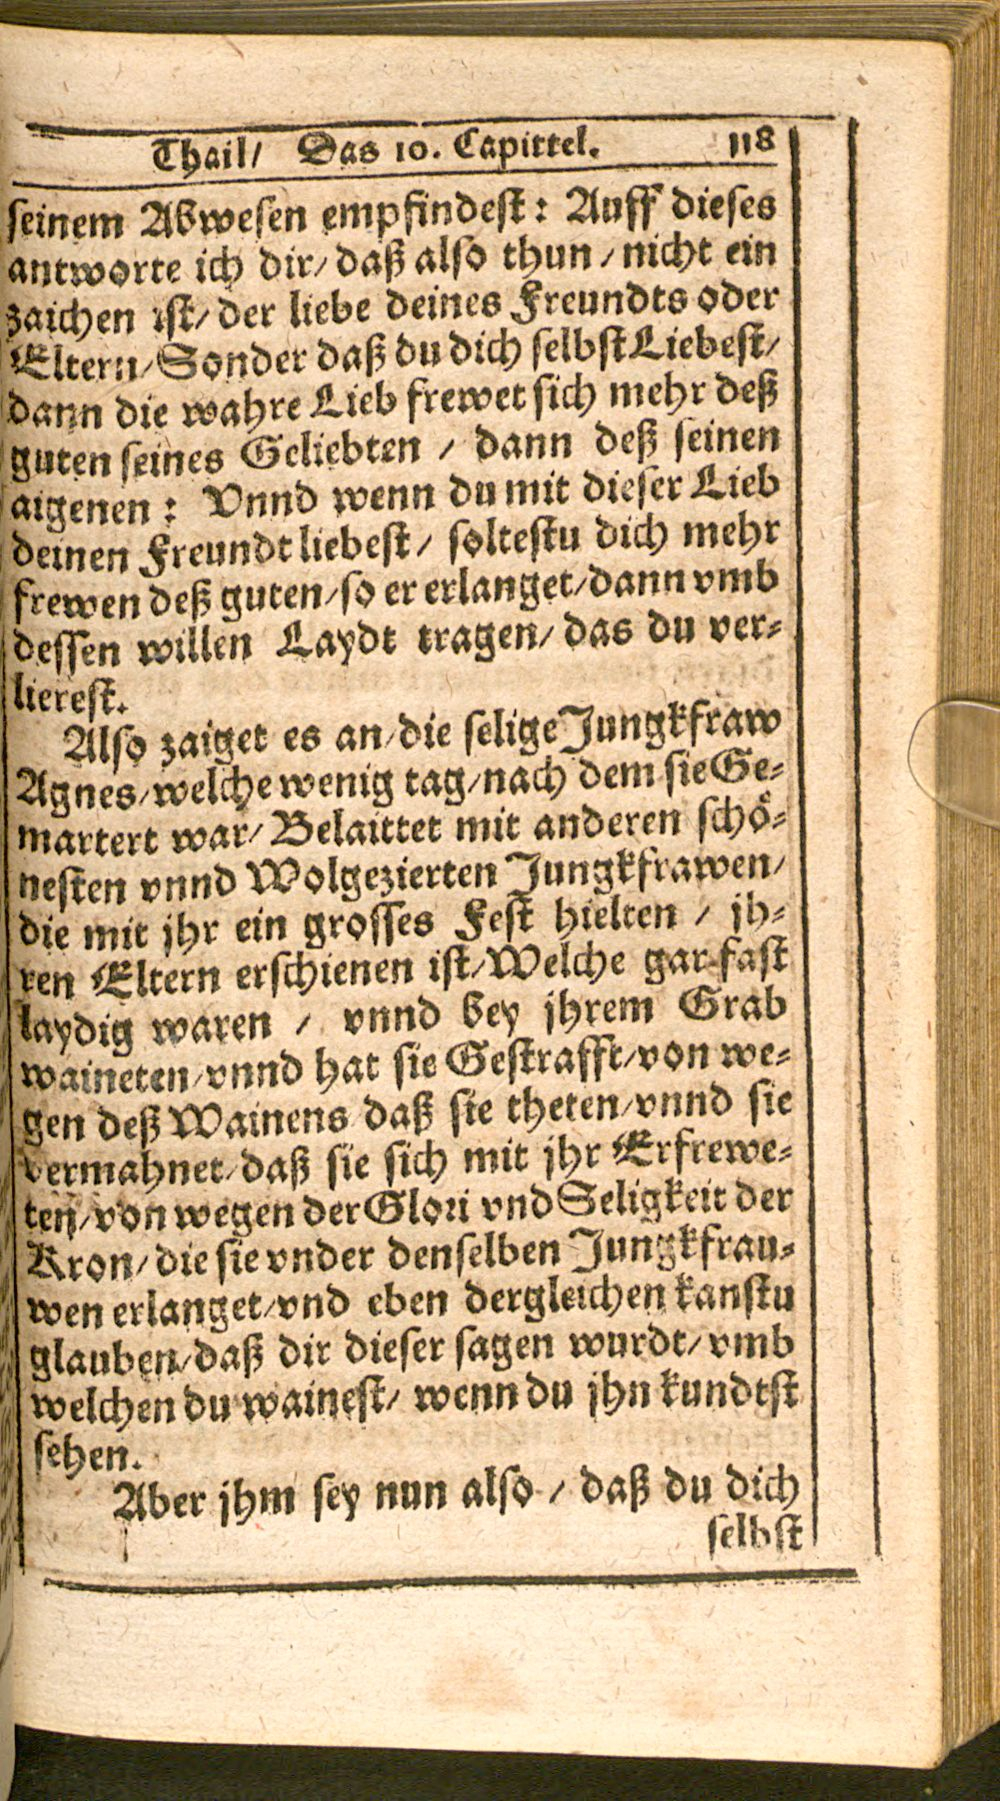 Thail/ Das 10. Capittel. 118
seinem Abwesen empfindest: Auff dieses
antworte ich dir/ daß also thun/ nicht ein
zaichen ist/ der liebe deines Freundts oder
Eltern/ Sonder daß du dich selbst Liebest/
dann die wahre Lieb frewet sich mehr deß
guten seines Geliebten / dann deß seinen
aigenen: Vnnd wenn du mit dieser Lieb
deinen Freundt liebest/ soltestu dich mehr
frewen deß guten/ so er erlanget/ dann vmb
dessen willen Laydt tragen/ das du ver-
lierest.
Also zaiget es an/ die selige Jungkfraw
Agnes/ welche wenig tag/ nach dem sie Ge-
martert war/ Belaittet mit anderen schö-
nesten vnnd Wolgezierten Jungkfrawen/
die mit jhr ein grosses Fest hielten / jh-
ren Eltern erschienen ist/ Welche gar fast
laydig waren / vnnd bey jhrem Grab
waineten/ vnnd hat sie Gestrafft/ von we-
gen deß Wainens daß sie theten/ vnnd sie
vermahnet/ daß sie sich mit jhr Erfrewe-
ten/ von wegen der Glori vnd Seligkeit der
Kron/ die sie vnder denselben Jungkfrau-
wen erlanget/ vnd eben dergleichen kanstu
glauben/ daß dir dieser sagen wurdt/ vmb
welchen du wainest/ wenn du jhn kundtst
sehen.
Aber jhm sey nun also / daß du dich
selbst